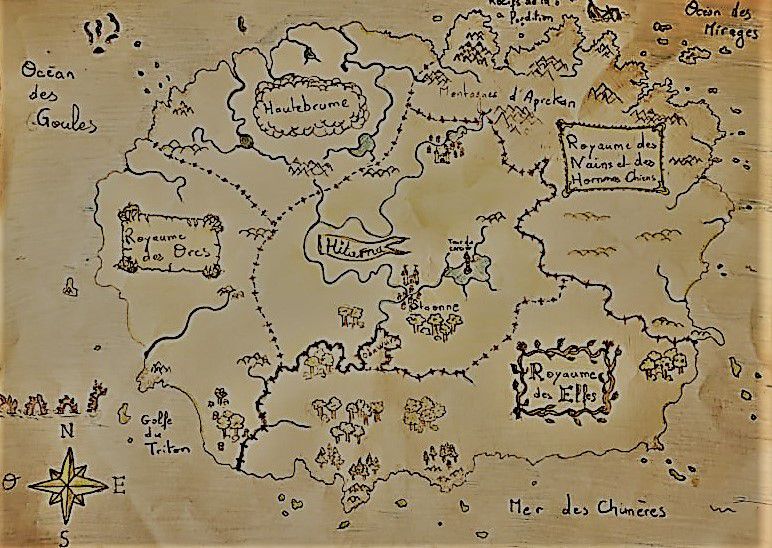 Récifs de la
Perdition
Océan des
Mirages
Océan
des
Goules
Hautebrume
Montagnes d'Aprekan
Royaume des
Nains et des
Hommes Chiens
Royaume
des Orcs
Tour du
Royaume
des Elfes
Golfe
du
Triton
N
O
E
S
Mer des Chimères